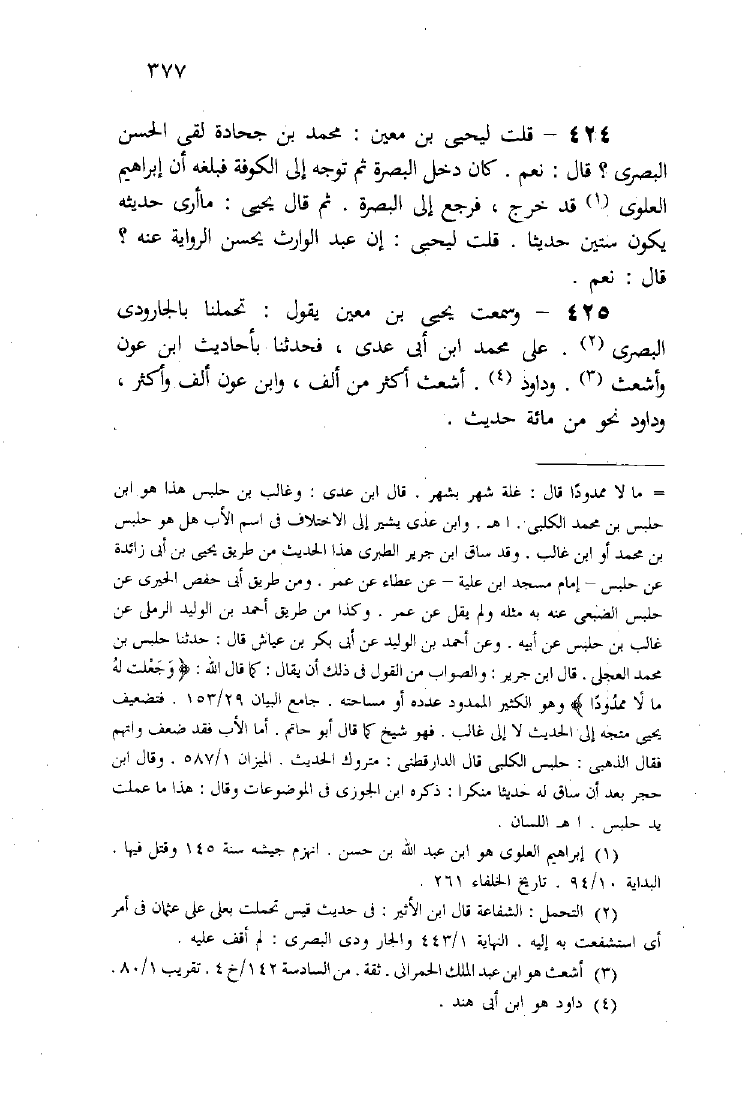 ٣٧٧
٤٢٤ – قلت ليحيى بن معين : محمد بن جحادة لقى الحسن
البصرى ؟ قال : نعم . كان دخل البصرة ثم توجه إلى الكوفة فبلغه أن إبراهيم
العلوى (١) قد خرج ، فرجع إلى البصرة . ثم قال يحيى : ماأرى حديثه
يكون ستين حديثا . قلت ليحيى : إن عبد الوارث يحسن الرواية عنه ؟
قال : نعم .
٤٢٥ – وسمعت يحيى بن معين يقول : تحملنا بالجارودى
البصرى (٢) . على محمد ابن أبى عدى ، فحدثنا بأحاديث ابن عون
وأشعث (٣) . وداوذ (٤) . أشعث أكثر من ألف ، وابن عون ألف وأكثر ،
وداود نحو من مائة حديث .
= ما لا ممدودًا قال : غلة شهر بشهر . قال ابن عدى : وغالب بن حلبس هذا هو ابن
حلبس بن محمد الكلبى . ا هـ . وابن عدى يشير إلى الاختلاف فى اسم الأب هل هو حلبس
بن محمد أو ابن غالب . وقد ساق ابن جرير الطبرى هذا الحديث من طريق يحيى بن أبى زائدة
عن حلبس – إمام مسجد ابن علية – عن عطاء عن عمر . ومن طريق أبى حفص الحيرى عن
حلبس الضبعى عنه به مثله ولم يقل عن عمر . وكذا من طريق أحمد بن الوليد الرملى عن
غالب بن حلبس عن أبيه . وعن أحمد بن الوليد عن أبى بكر بن عياش قال : حدثنا حلبس بن
محمد العجلى . قال ابن جرير : والصواب من القول فى ذلك أن يقال : كما قال الله : ﴿ وَجَعْلت لهُ
ما لًا ممدُودًا ﴾ وهو الكثير الممدود عدده أو مساحته . جامع البيان ١٥٣/٢٩ . فتضعيف
يحيى متجه إلى الحديث لا إلى غالب . فهو شيخ كما قال أبو حاتم . أما الأب فقد ضعف واتهم
فقال الذهبى : حلبس الكلبى قال الدارقطنى : متروك الحديث . الميزان ٥٨٧/١ . وقال ابن
حجر بعد أن ساق له حديثا منكرا : ذكره ابن الجوزى فى الموضوعات وقال : هذا ما عملت
يد حلبس . ا هـ اللسان .
(١) إبراهيم العلوى هو ابن عبد الله بن حسن . انهزم جيشه سنة ١٤٥ وقتل فيها .
البداية ٩٤/١٠ . تاريخ الخلفاء ٢٦١ .
(٢) التحمل : الشفاعة قال ابن الأثير : فى حديث قيس تحملت بعلى على عثمان فى أمر
أى استشفعت به إليه . النهاية ٤٤٣/١ والجار ودى البصرى : لم أقف عليه .
(٣) أشعث هو ابن عبد الملك الحمرانى . ثقة . من السادسة ١٤٢/خ ٤ . تقريب ٨٠/١ .
(٤) داود هو ابن أبى هند .